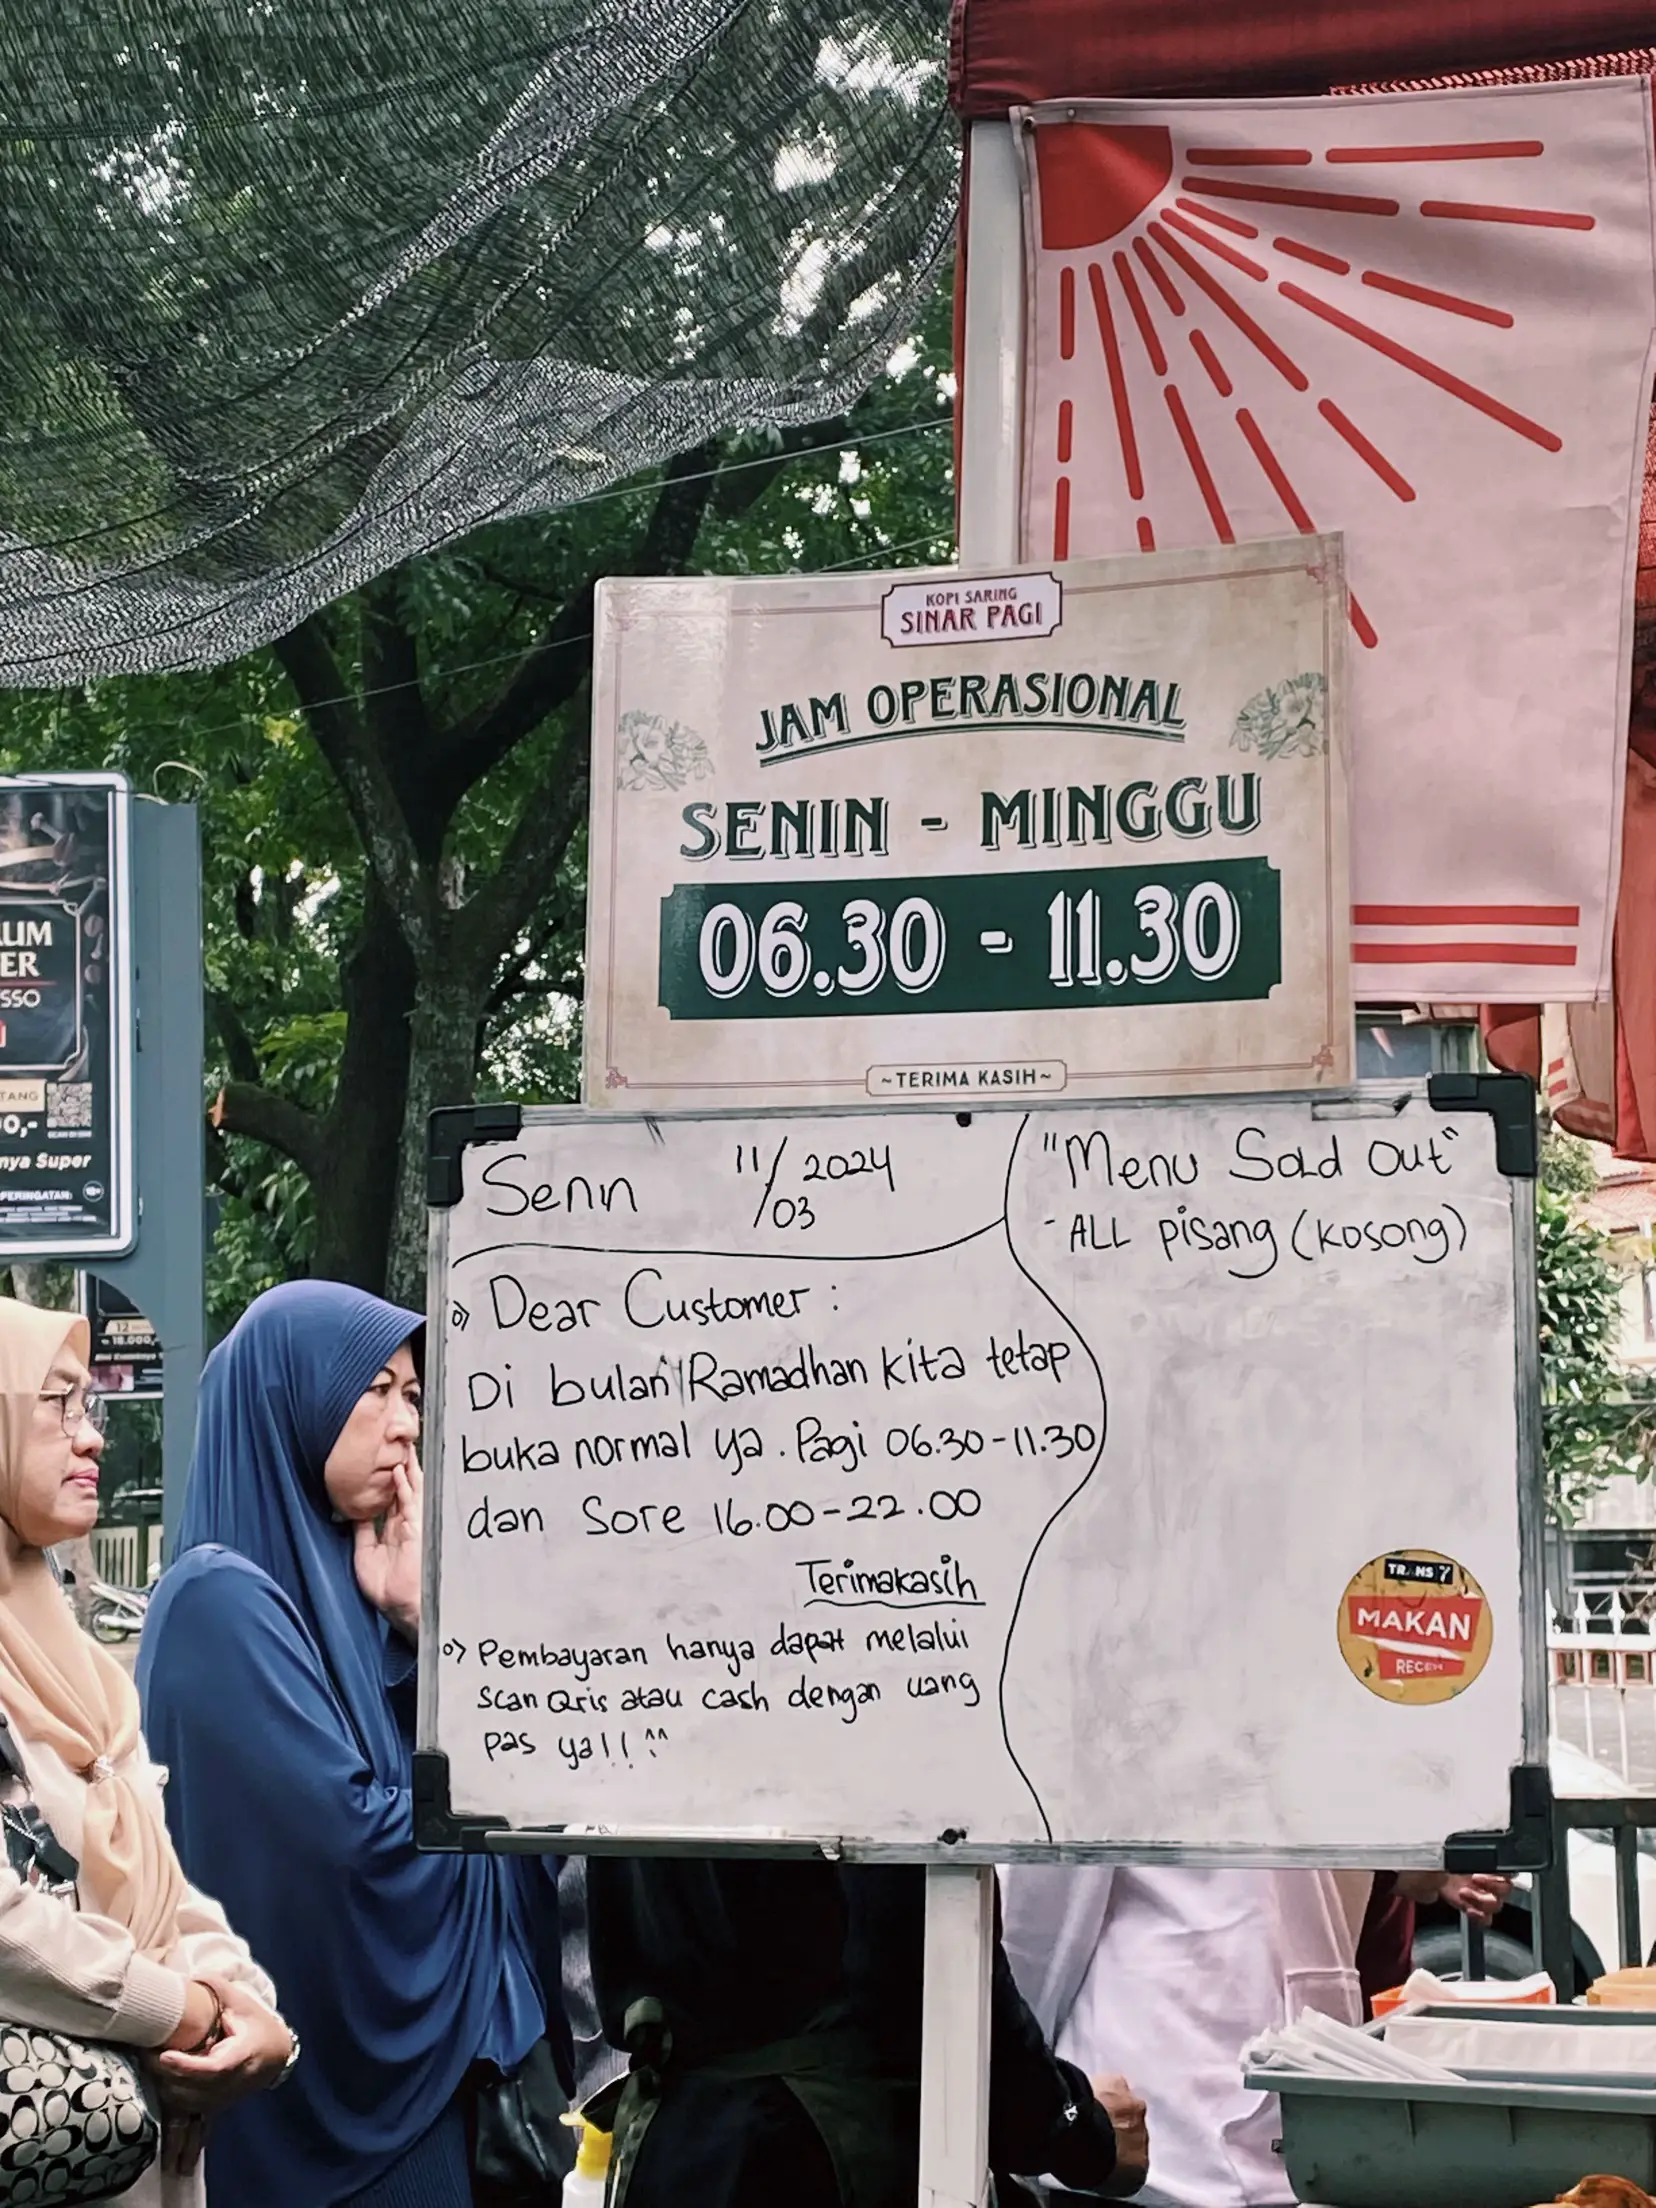 KOPI SARING
SINAR PAGI
JAM OPERASIONAL
SENIN - MINGGU
06.30 - 11.30
~TERIMA KASIH~
Senin 11/03 2024
Dear Customer :
Di bulan Ramadhan kita tetap
buka normal ya. Pagi 06.30-11.30
dan Sore 16.00-22.00
Terimakasih
Pembayaran hanya dapat melalui
Scan Qris atau cash dengan uang
pas ya!! ^^
"Menu Sold Out"
- ALL pisang (kosong)
TRANS 7
MAKAN
RECEH
UM
ER
SSO
TANG
0,-
nya Super
PERINGATAN:
12
18.000,-